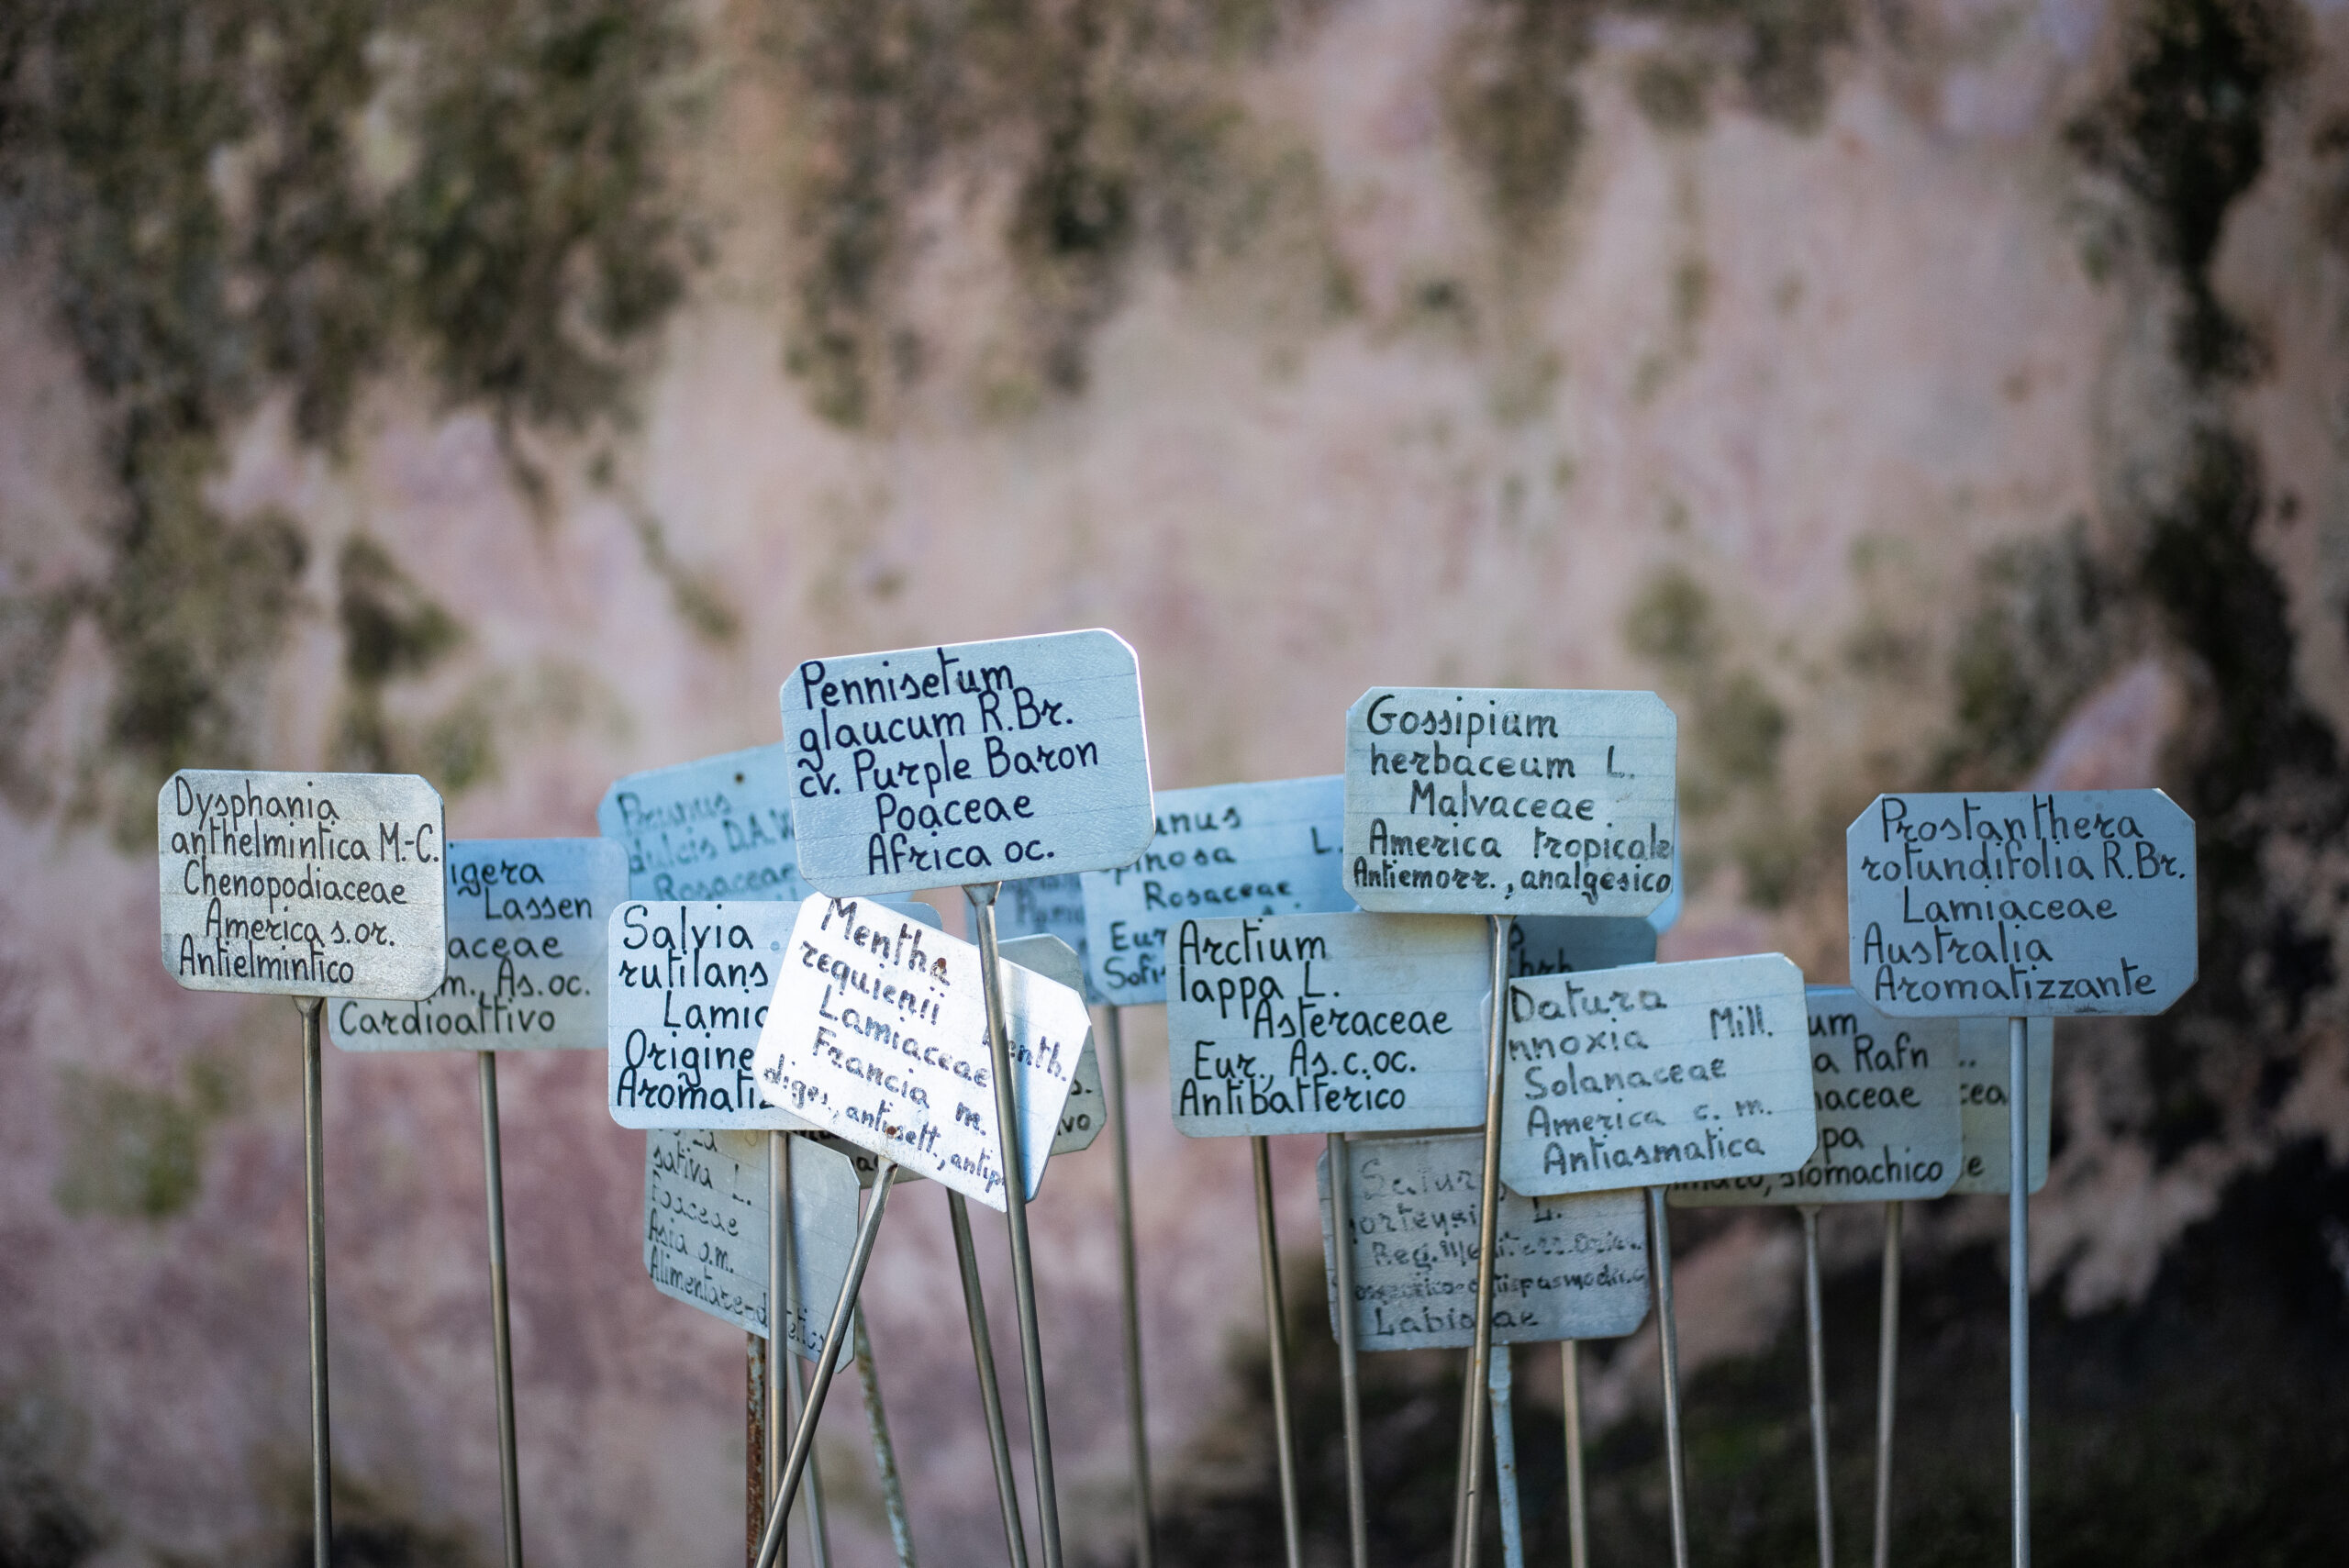 Dysphania
anthelmintica M.-C.
Chenopodiaceae
America s.or.
Antielmintico
igera
Lassen
aceae
m., As.oc.
Cardioattivo
Prunus
dulcis D.A.W
Rosaceae
Pennisetum
glaucum R.Br.
cv. Purple Baron
Poaceae
Africa oc.
Salvia
rutilans
Lamic
Origine
Aromatiz
Mentha
requienii
Lamiaceae
Francia m.
diges., antisett., antip
enth.
s.
vo
sativa L.
Poaceae
Asia o.m.
Alimentare-
anus
pinosa L.
Rosaceae
Eur
Gossipium
herbaceum L.
Malvaceae
America tropicale
Antiemorr., analgesico
Arctium
lappa L.
Asteraceae
Eur., As.c.oc.
Antibatterico
Datura
nnoxia Mill.
Solanaceae
America c. m.
Antiasmatica
Satur
L.
Labiatae
Prostanthera
rotundifolia R.Br.
Lamiaceae
Australia
Aromatizzante
um
a Rafn
naceae
pa
stomachico
cea
e